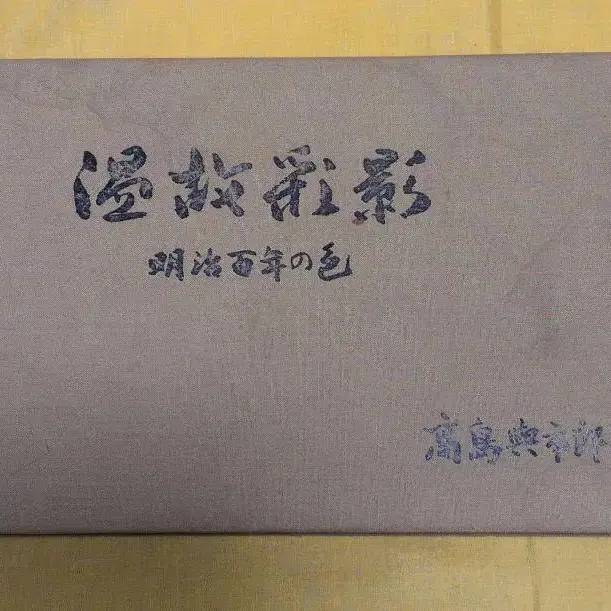 温故彩影
明治百年の色
高島與市郎